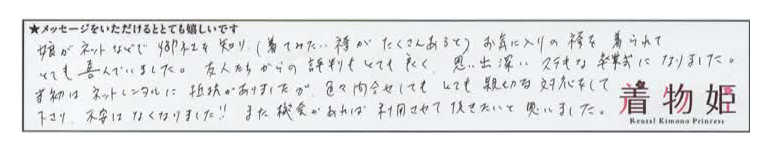 ★メッセージをいただけるととても嬉しいです
娘がネットなどで御社を知り、(着てみたい袴がたくさんあると)お気に入りの袴を着られて
とても喜んでいました。友人たちからの評判もとても良く、思い出深いステキな卒業式になりました。
最初はネットレンタルに抵抗がありましたが、色々問合せしてもとても親切な対応をして
下さり、不安はなくなりました!!また機会があれば利用させて頂きたいと思いました。
着物姫
Rental Kimono Princess